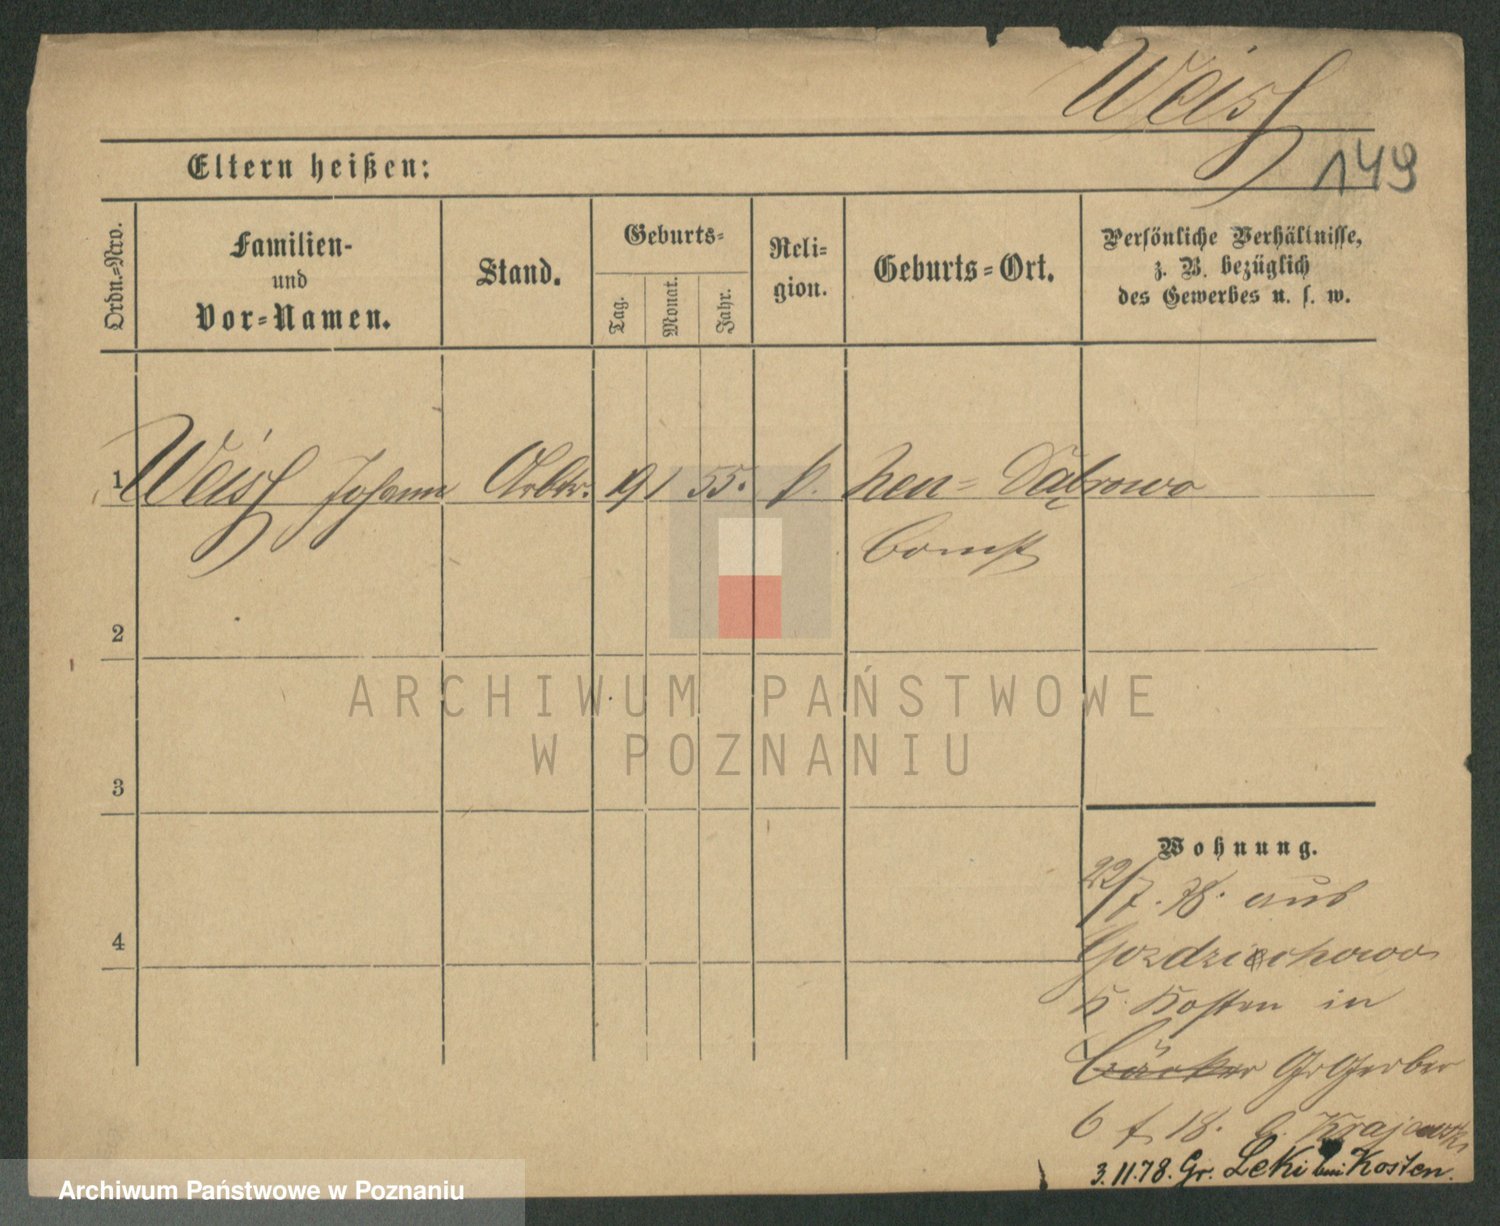 Weiss
149
Eltern heißen:
Ordn.-Nro.
Familien-
und
Vor-Namen.
Stand.
Geburts-
Tag.
Monat.
Jahr.
Reli-
gion.
Geburts-Ort.
Persönliche Verhältnisse,
z. B. bezüglich
des Gewerbes u. s. w.
1 Weiss Johann Arbtr. 19 1 55. k. Neu- Dąbrowo
Bomst
2
ARCHIWUM PAŃSTWOWE
W POZNANIU
3
Wohnung.
22/7. 78. aus
Gozdziechowo
4
K. Kosten in
Bäcker Gr Gerber
6 f. 18. b. Krajewski
3.11.78. Gr. Leki bei Kosten.
Archiwum Państwowe w Poznaniu